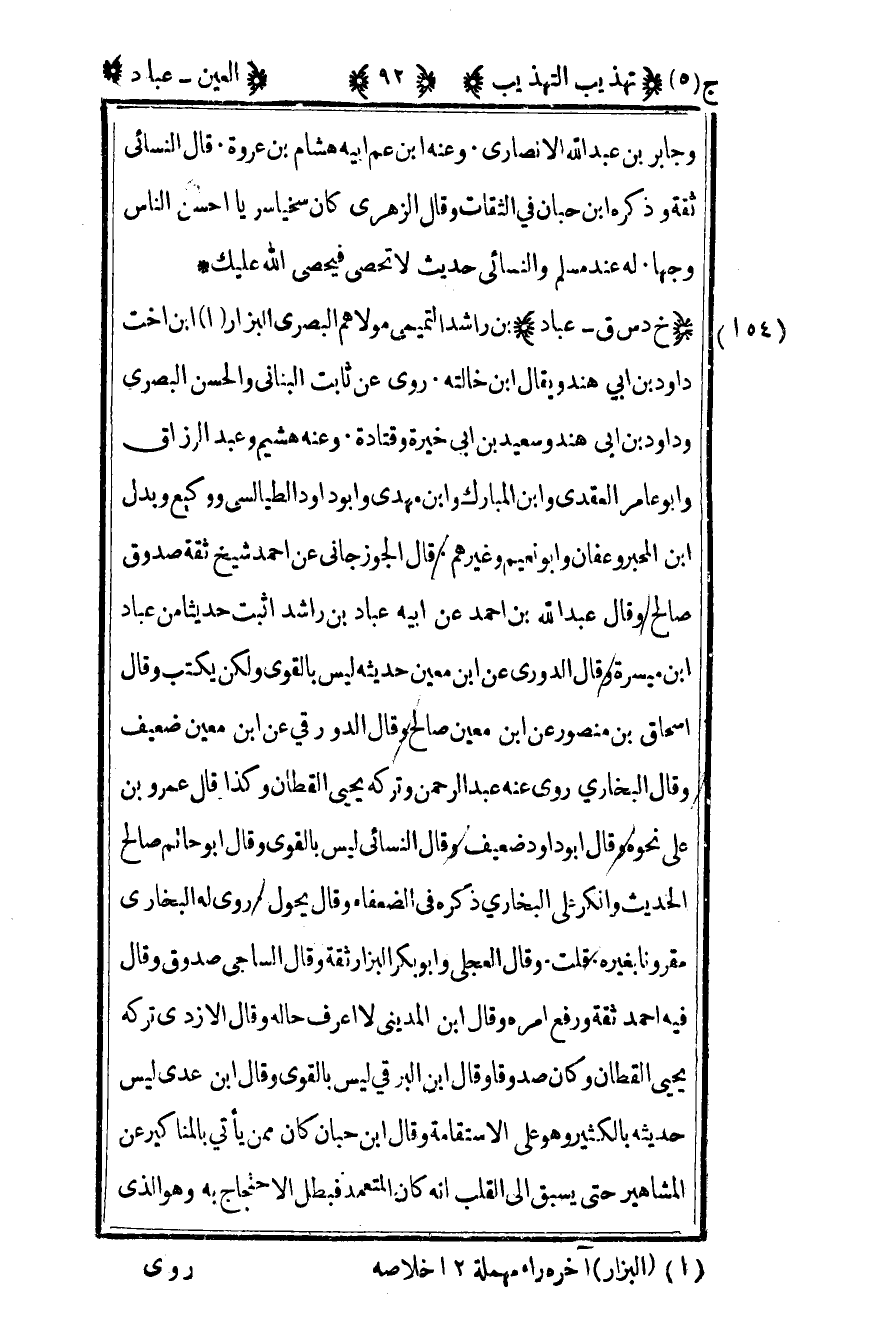 ج (٥) ﴿ تهذيب التهذيب ﴾ ﴿ ٩٢ ﴾ ﴿ العين - عباد ﴾
وجابر بن عبدالله الانصارى · وعنه ابن عم ابيه هشام بن عروة · قال النسائى
ثقة وذكره ابن حبان في الثقات وقال الزهرى كان سخيا سريا احسن الناس
وجها · له عند مسلم والنسائى حديث لا تحصى فيحصى الله عليك *
(١٥٤) ﴿ خ د س ق - عباد ﴾ بن راشد التميمى مولاهم البصرى البزار (١) ابن اخت
داود بن ابي هند ويقال ابن خالته · روى عن ثابت البنانى والحسن البصري
وداود بن ابى هند وسعيد بن ابى خيرة وقتادة · وعنه هشيم وعبد الرزاق
وابو عامر العقدى وابن المبارك وابن مهدى وابو داود الطيالسى ووكيع وبدل
ابن المحبر وعفان وابو نعيم وغيرهم · قال الجوزجانى عن احمد شيخ ثقة صدوق
صالح وقال عبدالله بن احمد عن ابيه عباد بن راشد اثبت حديثا من عباد
ابن ميسرة وقال الدورى عن ابن معين حديثه ليس بالقوى ولكن يكتب وقال
اسحاق بن منصور عن ابن معين صالح وقال الدورقي عن ابن معين ضعيف
وقال البخاري روى عنه عبد الرحمن وتركه يحيى القطان وكذا قال عمرو بن
على نحوه وقال ابو داود ضعيف وقال النسائى ليس بالقوى وقال ابو حاتم صالح
الحديث وانكر على البخاري ذكره فى الضعفاء وقال يحول روى له البخارى
مقرونا بغيره · قلت · وقال العجلى وابو بكر البزار ثقة وقال الساجى صدوق وقال
فيه احمد ثقة ورفع امره وقال ابن المدينى لا اعرف حاله وقال الازدى تركه
يحيى القطان وكان صدوقا وقال ابن البرقي ليس بالقوى وقال ابن عدى ليس
حديثه بالكثير وهو على الاستقامة وقال ابن حبان كان ممن يأتي بالمناكير عن
المشاهير حتى يسبق الى القلب انه كان المتعمد فبطل الاحتجاج به وهو الذى
(١) (البزار) آخره راء مهملة ١٢ خلاصه
روى